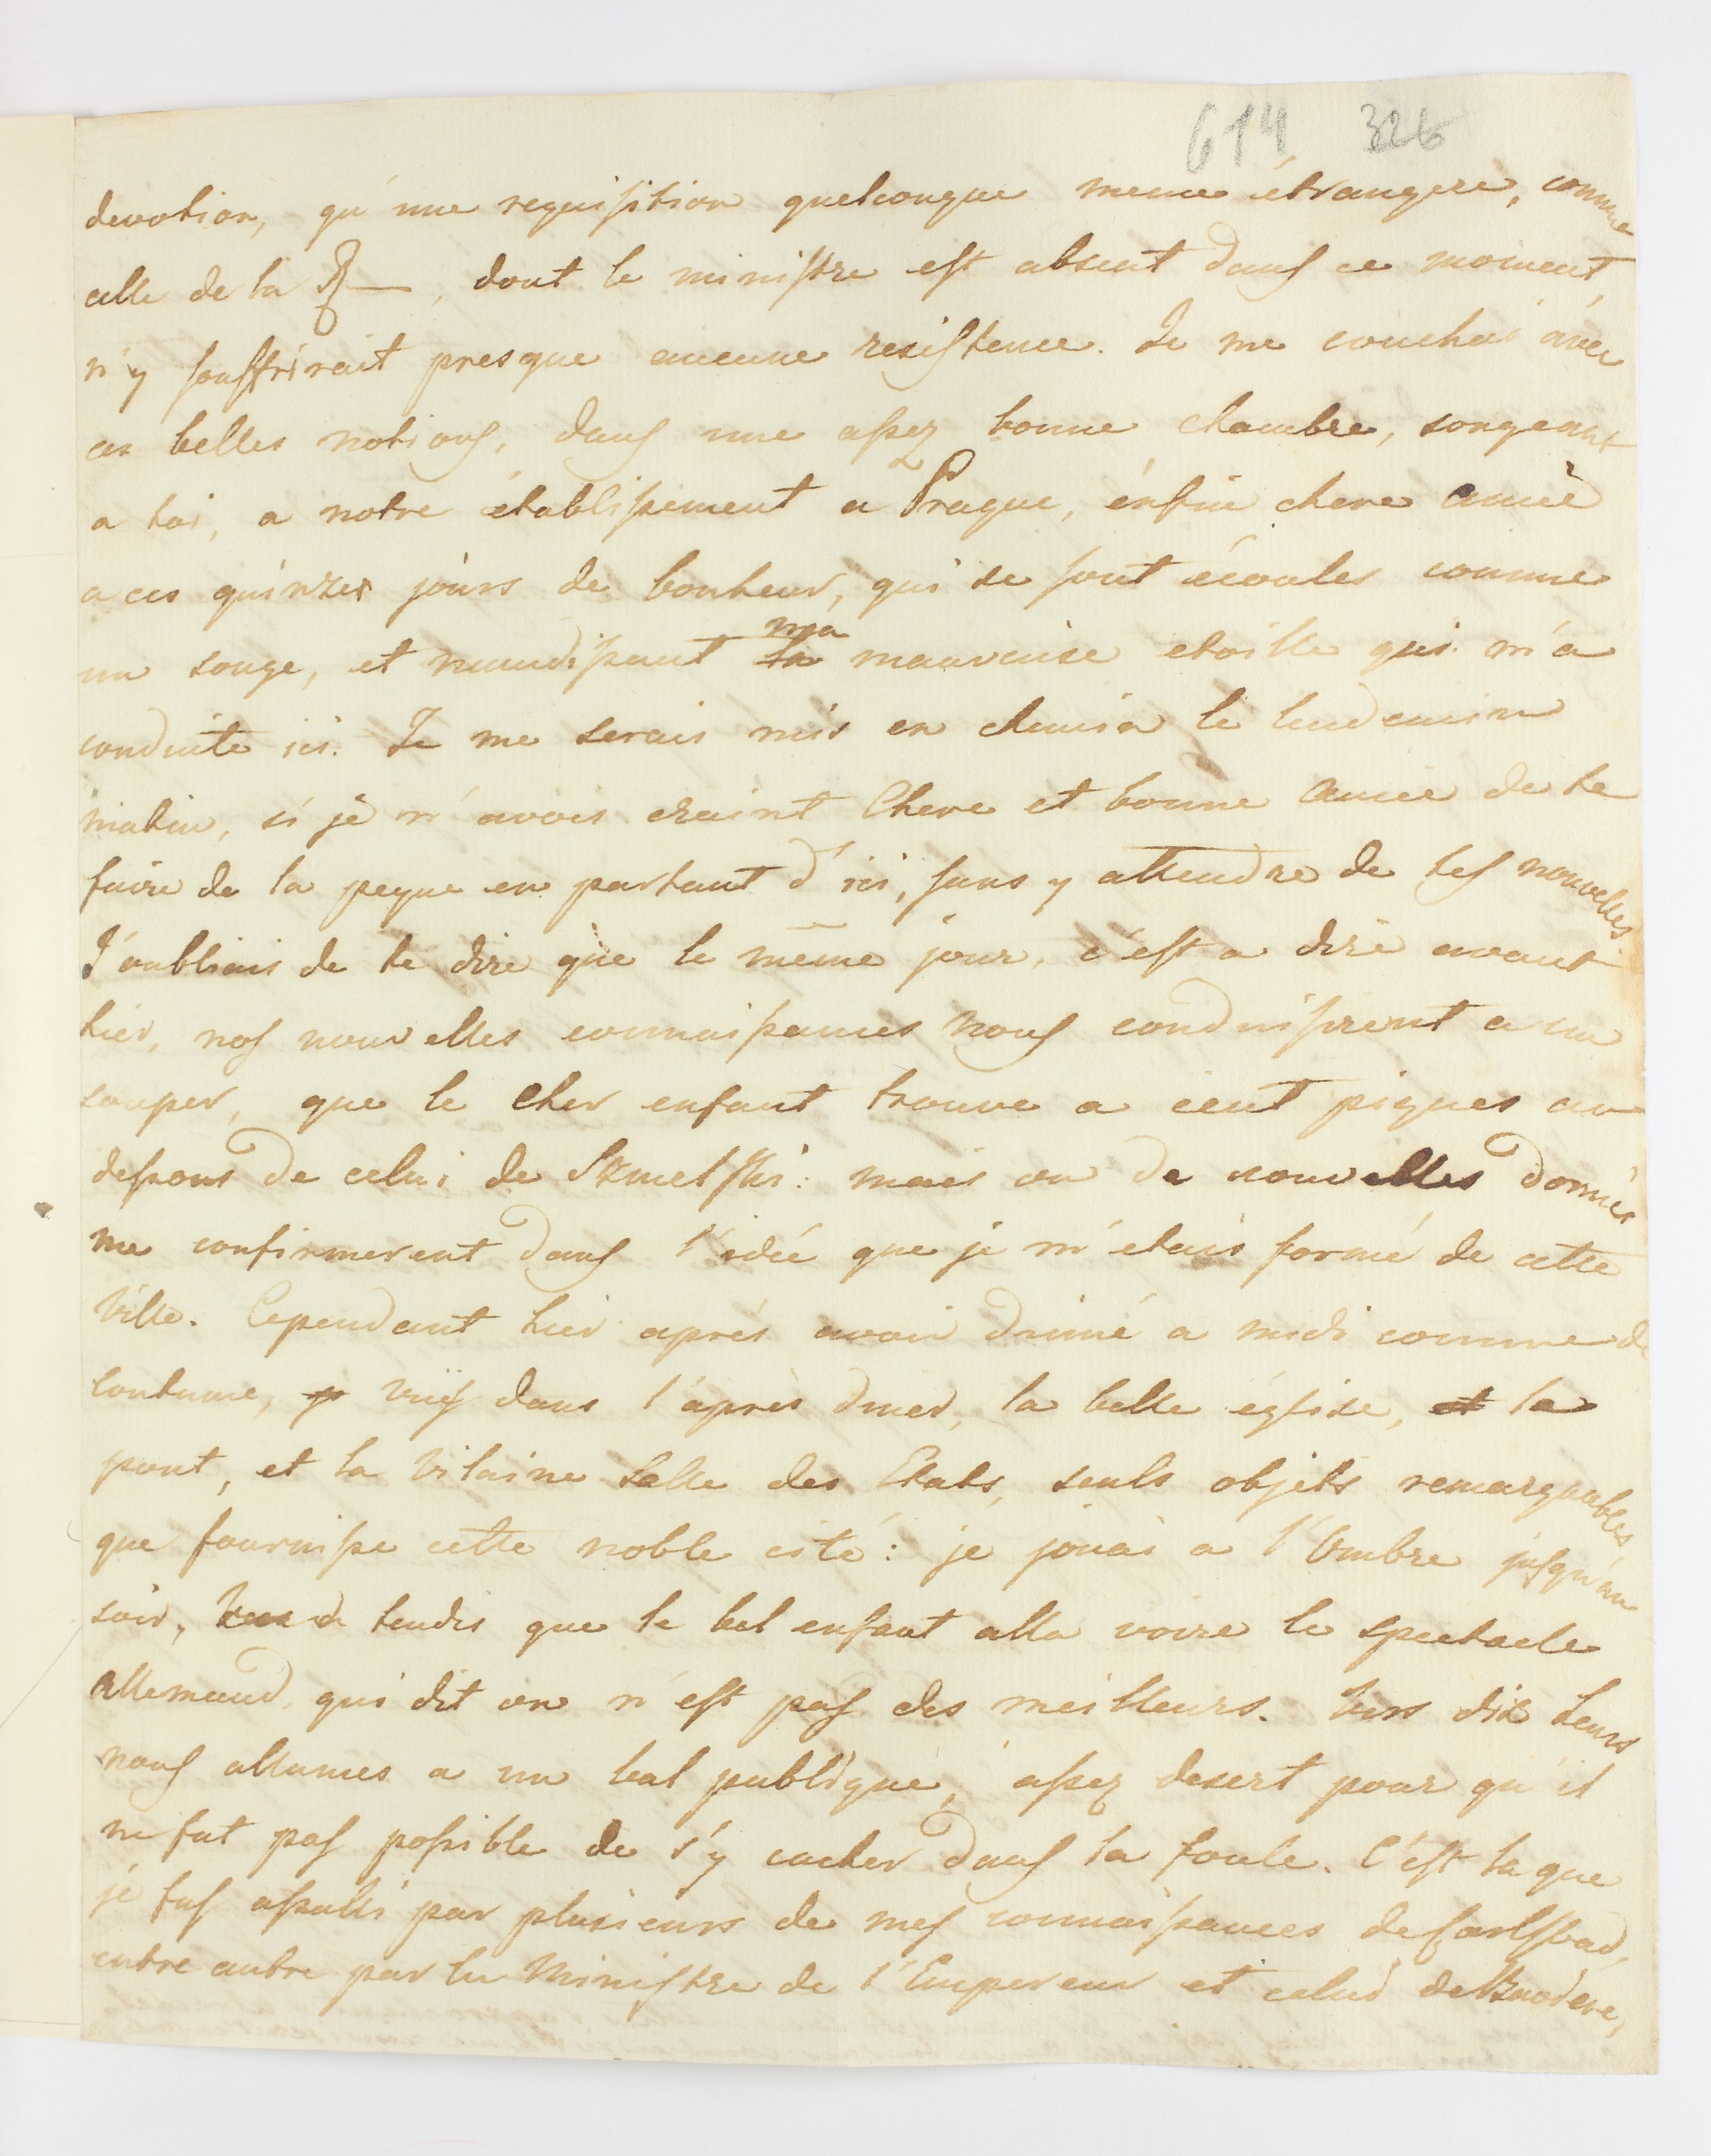 614 326
devotion, qu'une requisition quelconque meme étrangere, comme
celle de la R—, dont le ministre est absent dans ce moment,
n'y souffrirait presque aucune resistence. Je me couchai avec
ces belles notions, dans une assez bonne chambre, songeant
a toi, a notre établissement a Prague, énfin chere amie
a ces quinzes jours de bonheur, qui se sont écoules comme
un songe, et maudissant la ma mauvaise etoille qui m'a
conduite ici. Je me serais mis en chemin le lendemain
matin, si je n'avois craint Chere et bonne amie de te
faire de la peyne en partant d'ici, sans y attendre de tes nouvelles
J'oubliais de te dire que le même jour, c'est a dire avant
hier, nos nouvelles connaissances nous conduisirent a un
souper, que le cher enfant trouve a cent piques au
dessous de celui de : mais ou de nouvelles donnés
me confirmerent dans l'idée que je m'étais formé de cette
Ville. Cependant hier aprés avoir dinné a midi comme de
coutume, je vuïs dans l'aprés diner, la belle église, et le
pont, et la vilaine salle des Etats, seuls objets remarquables
que fournisse cette noble cité: je jouai a l'Ombre jusqu'au
soir, tandis que le bel enfant alla voire le spectacle
allemand, qui dit on n'est pas des meilleurs. Vers dix heurs
nous allames a un bal publique, assez desert pour qu'il
ne fut pas possible de s'y cacher dans la foule. C'est la que
je fus assalli par plusieurs de mes connaissances de Carlsbad,
entre autre par le Ministre de l'Empereur et celui de